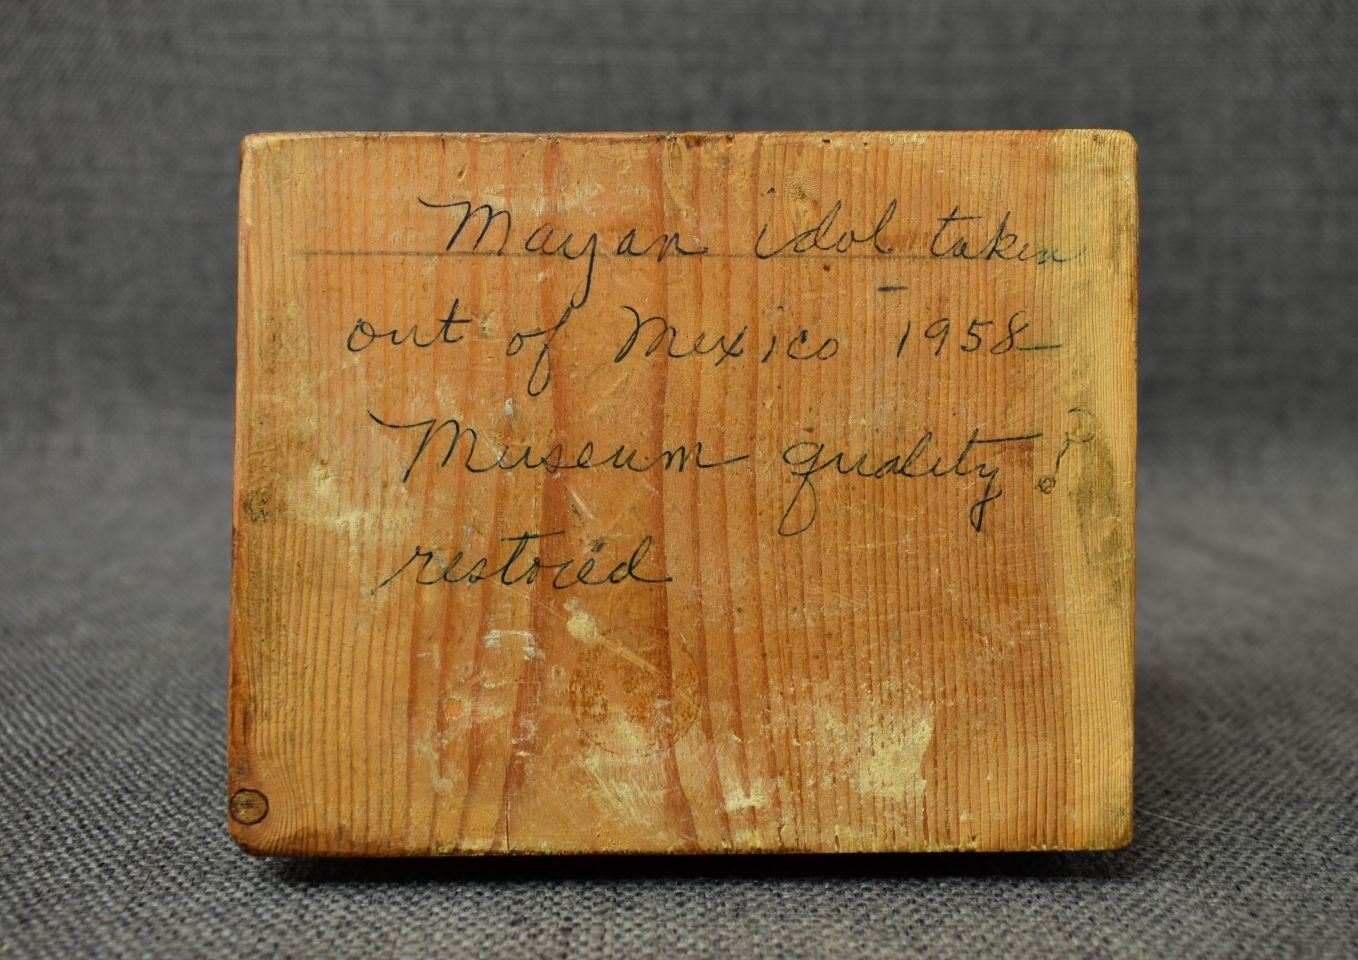 Mayan idol taken
out of Mexico 1958
Museum quality!
restored